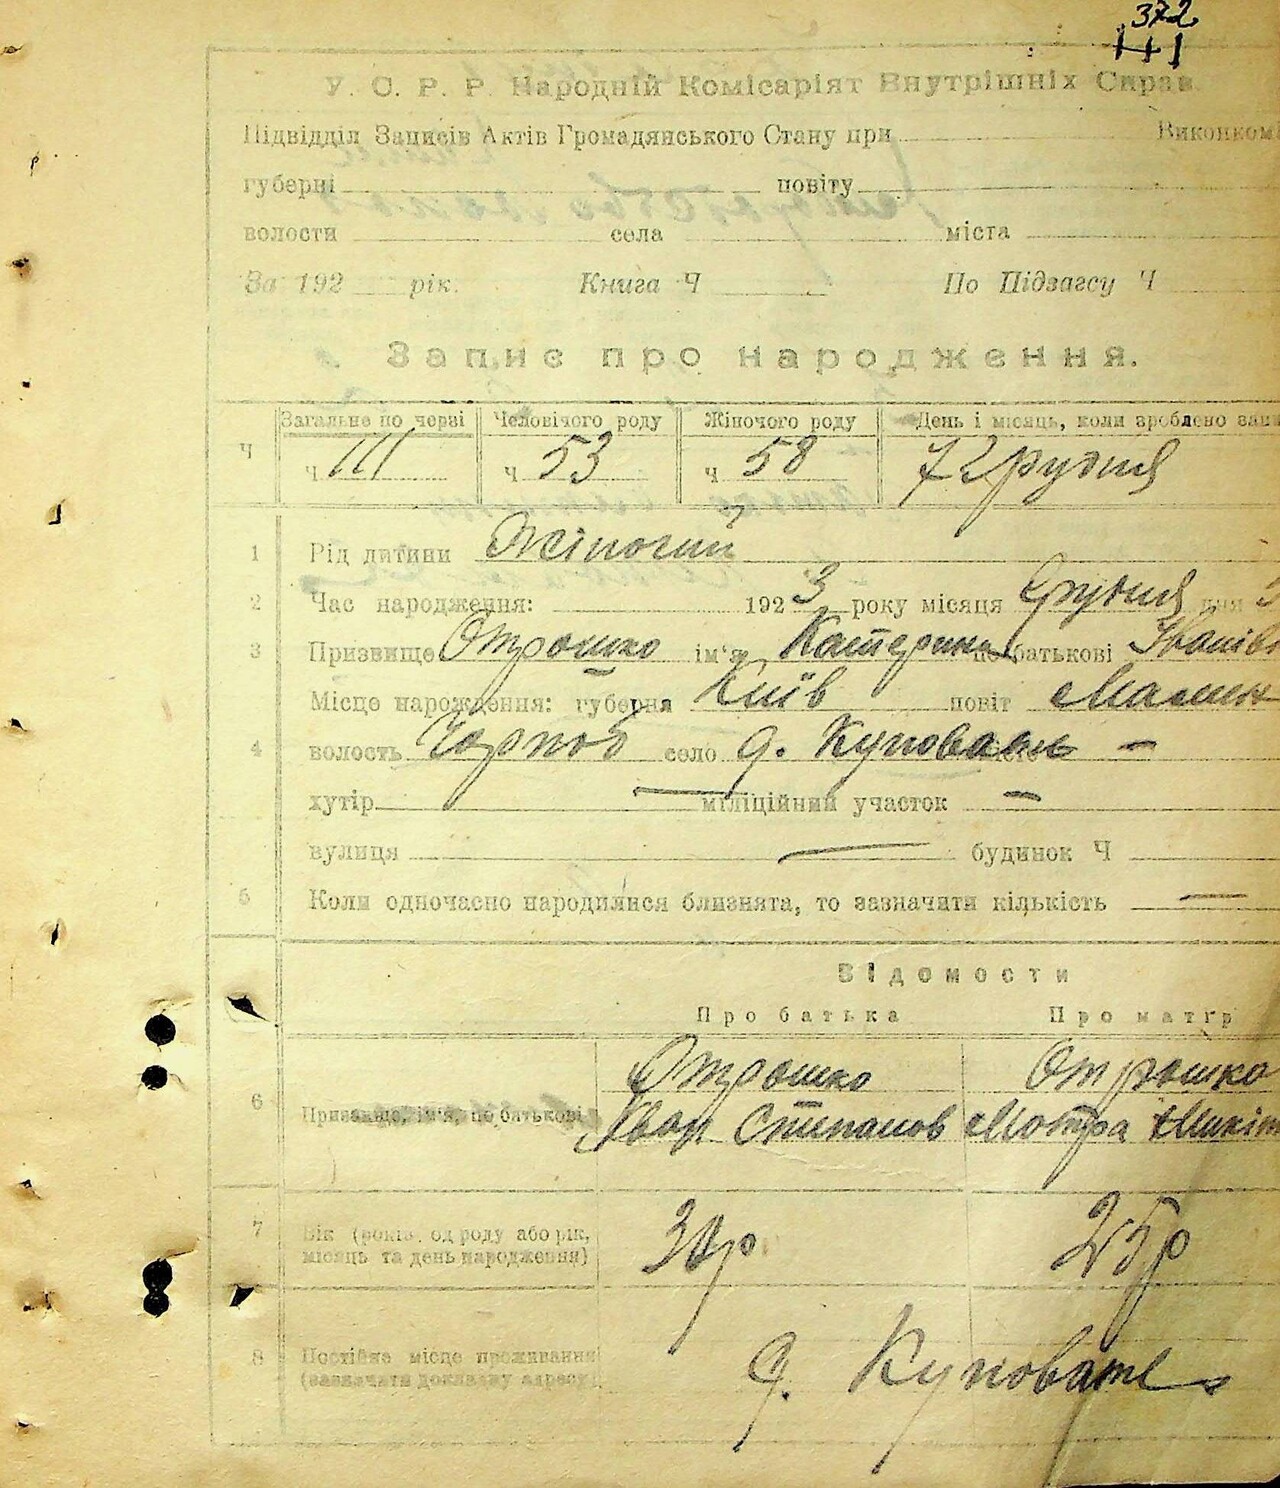 372
У. С. Р. Р. Народній Комісаріят Внутрішніх Справ
Підвідділ Записів Актів Громадянського Стану при Виконком
губерні повіту
волости села міста
За 192 рік. Книга Ч По Підзагсу Ч
Запис про народження.
Загальне по черзі Человічого роду Жіночого роду День і місяць, коли зроблено запи
Ч ч 111 ч 53 ч 58 7 Грудня
1 Рід дитини Жіночий
2 Час народження: 1923 року місяця Грудня дня
3 Призвище Отрошко ім'я Катерина по батькові Іванів
Місце нарождення: губерня Київ повіт Малин
4 волость Чорноб село д. Куповате місто —
хутір — міліційний участок —
вулиця — будинок Ч
5 Коли одночасно народилися близнята, то зазначити кількість —
Відомости
Про батька Про матір
Отрошко Отрошко
6 Призвище, ім'я, по батькові Іван Степанов Мотра Микит
7 Вік (років од роду або рік, місяць та день народження) 25р
8 Постійне місце проживання (зазначити докладну адресу) д. Куповате